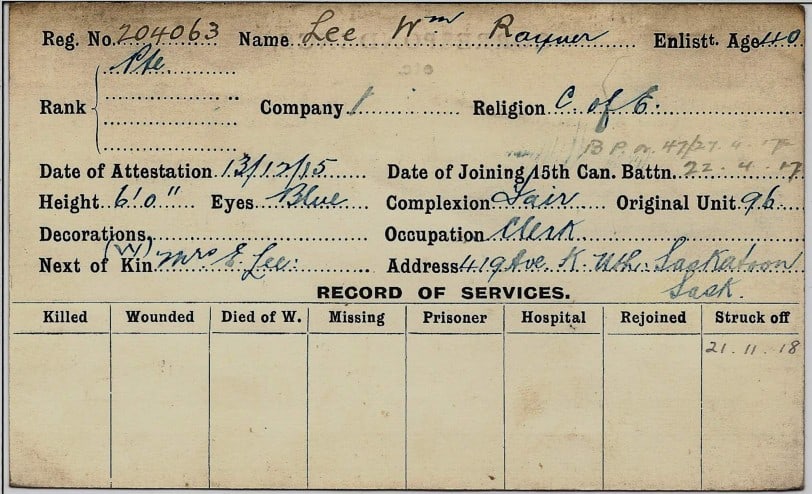 Reg. No. 204063 Name Lee Wm Rayner Enlistt. Age 40
Pte
Rank Company 1 Religion C. of E.
B P. 47/27. 4. 17
Date of Attestation 13/12/15 Date of Joining 15th Can. Battn. 22 . 4 . 17
Height 6' 0" Eyes Blue Complexion Fair Original Unit 96
Decorations, Occupation Clerk
Next of Kin (W) Mrs E. Lee. Address 419 Ave. K. Nth. Saskatoon
Sask.
RECORD OF SERVICES.
Killed Wounded Died of W. Missing Prisoner Hospital Rejoined Struck off
21 . 11 . 18